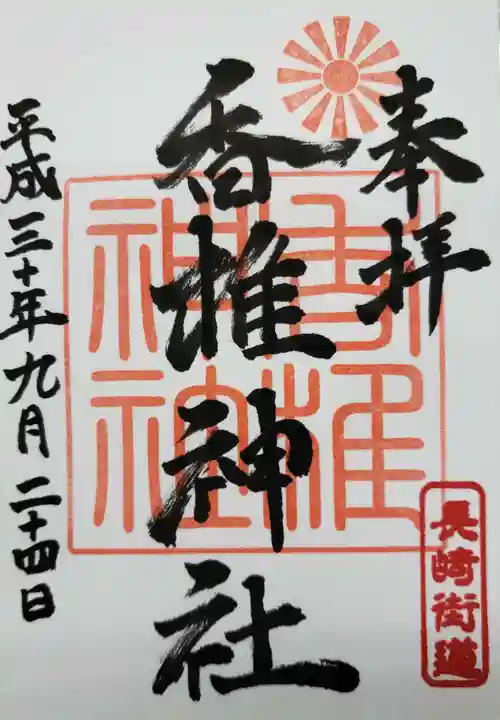 奉拝
香椎神社
香椎
神社
平成三十年九月二十四日
長崎街道